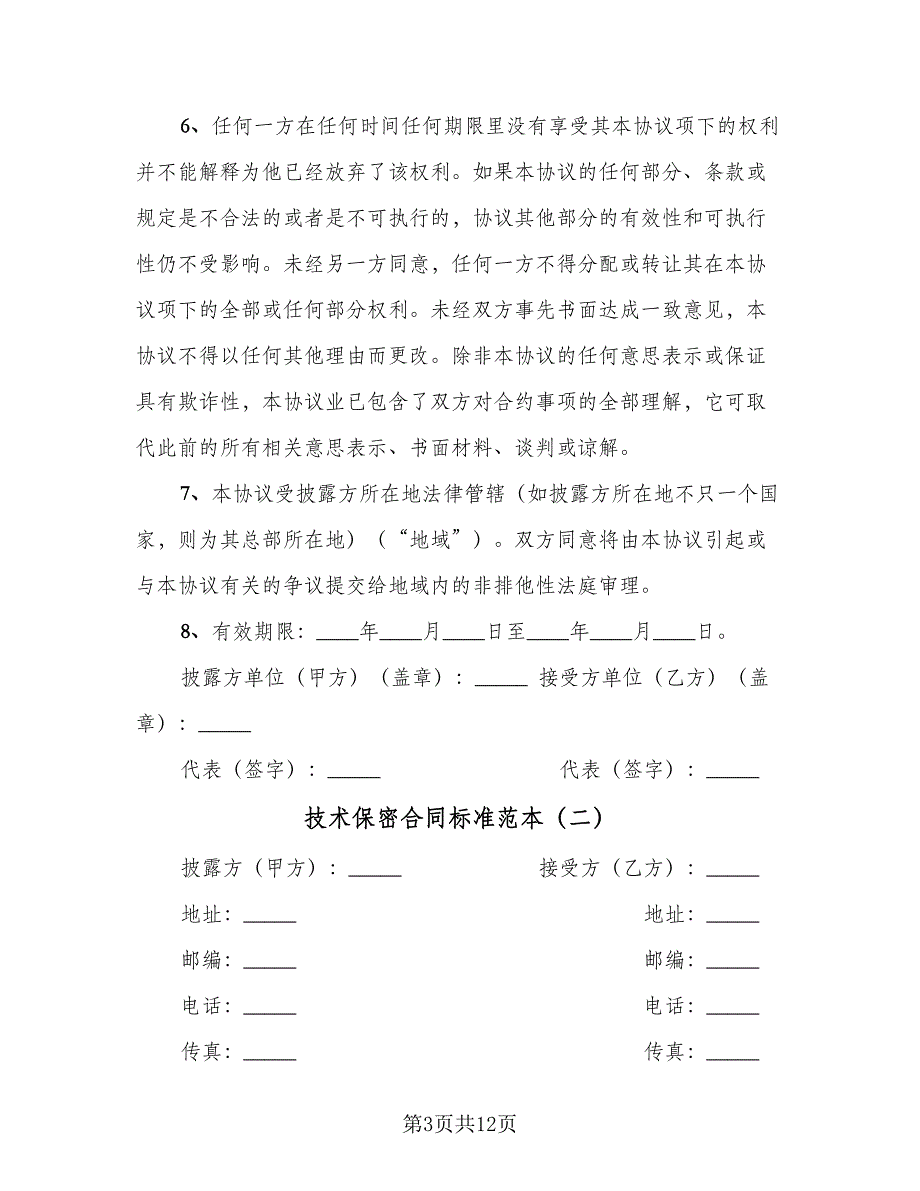 6、任何一方在任何时间任何期限里没有享受其本协议项下的权利
并不能解释为他已经放弃了该权利。如果本协议的任何部分、条款或
规定是不合法的或者是不可执行的，协议其他部分的有效性和可执行
性仍不受影响。未经另一方同意，任何一方不得分配或转让其在本协
议项下的全部或任何部分权利。未经双方事先书面达成一致意见，本
协议不得以任何其他理由而更改。除非本协议的任何意思表示或保证
具有欺诈性，本协议业已包含了双方对合约事项的全部理解，它可取
代此前的所有相关意思表示、书面材料、谈判或谅解。
7、本协议受披露方所在地法律管辖（如披露方所在地不只一个国
家，则为其总部所在地）（“地域”）。双方同意将由本协议引起或
与本协议有关的争议提交给地域内的非排他性法庭审理。
8、有效期限：____年____月____日至____年____月____日。
披露方单位（甲方）（盖章）：_____ 接受方单位（乙方）（盖
章）：_____
代表（签字）：_____ 代表（签字）：_____
技术保密合同标准范本（二）
披露方（甲方）：_____ 接受方（乙方）：_____
地址：_____ 地址：_____
邮编：_____ 邮编：_____
电话：_____ 电话：_____
传真：_____ 传真：_____
第3页共12页